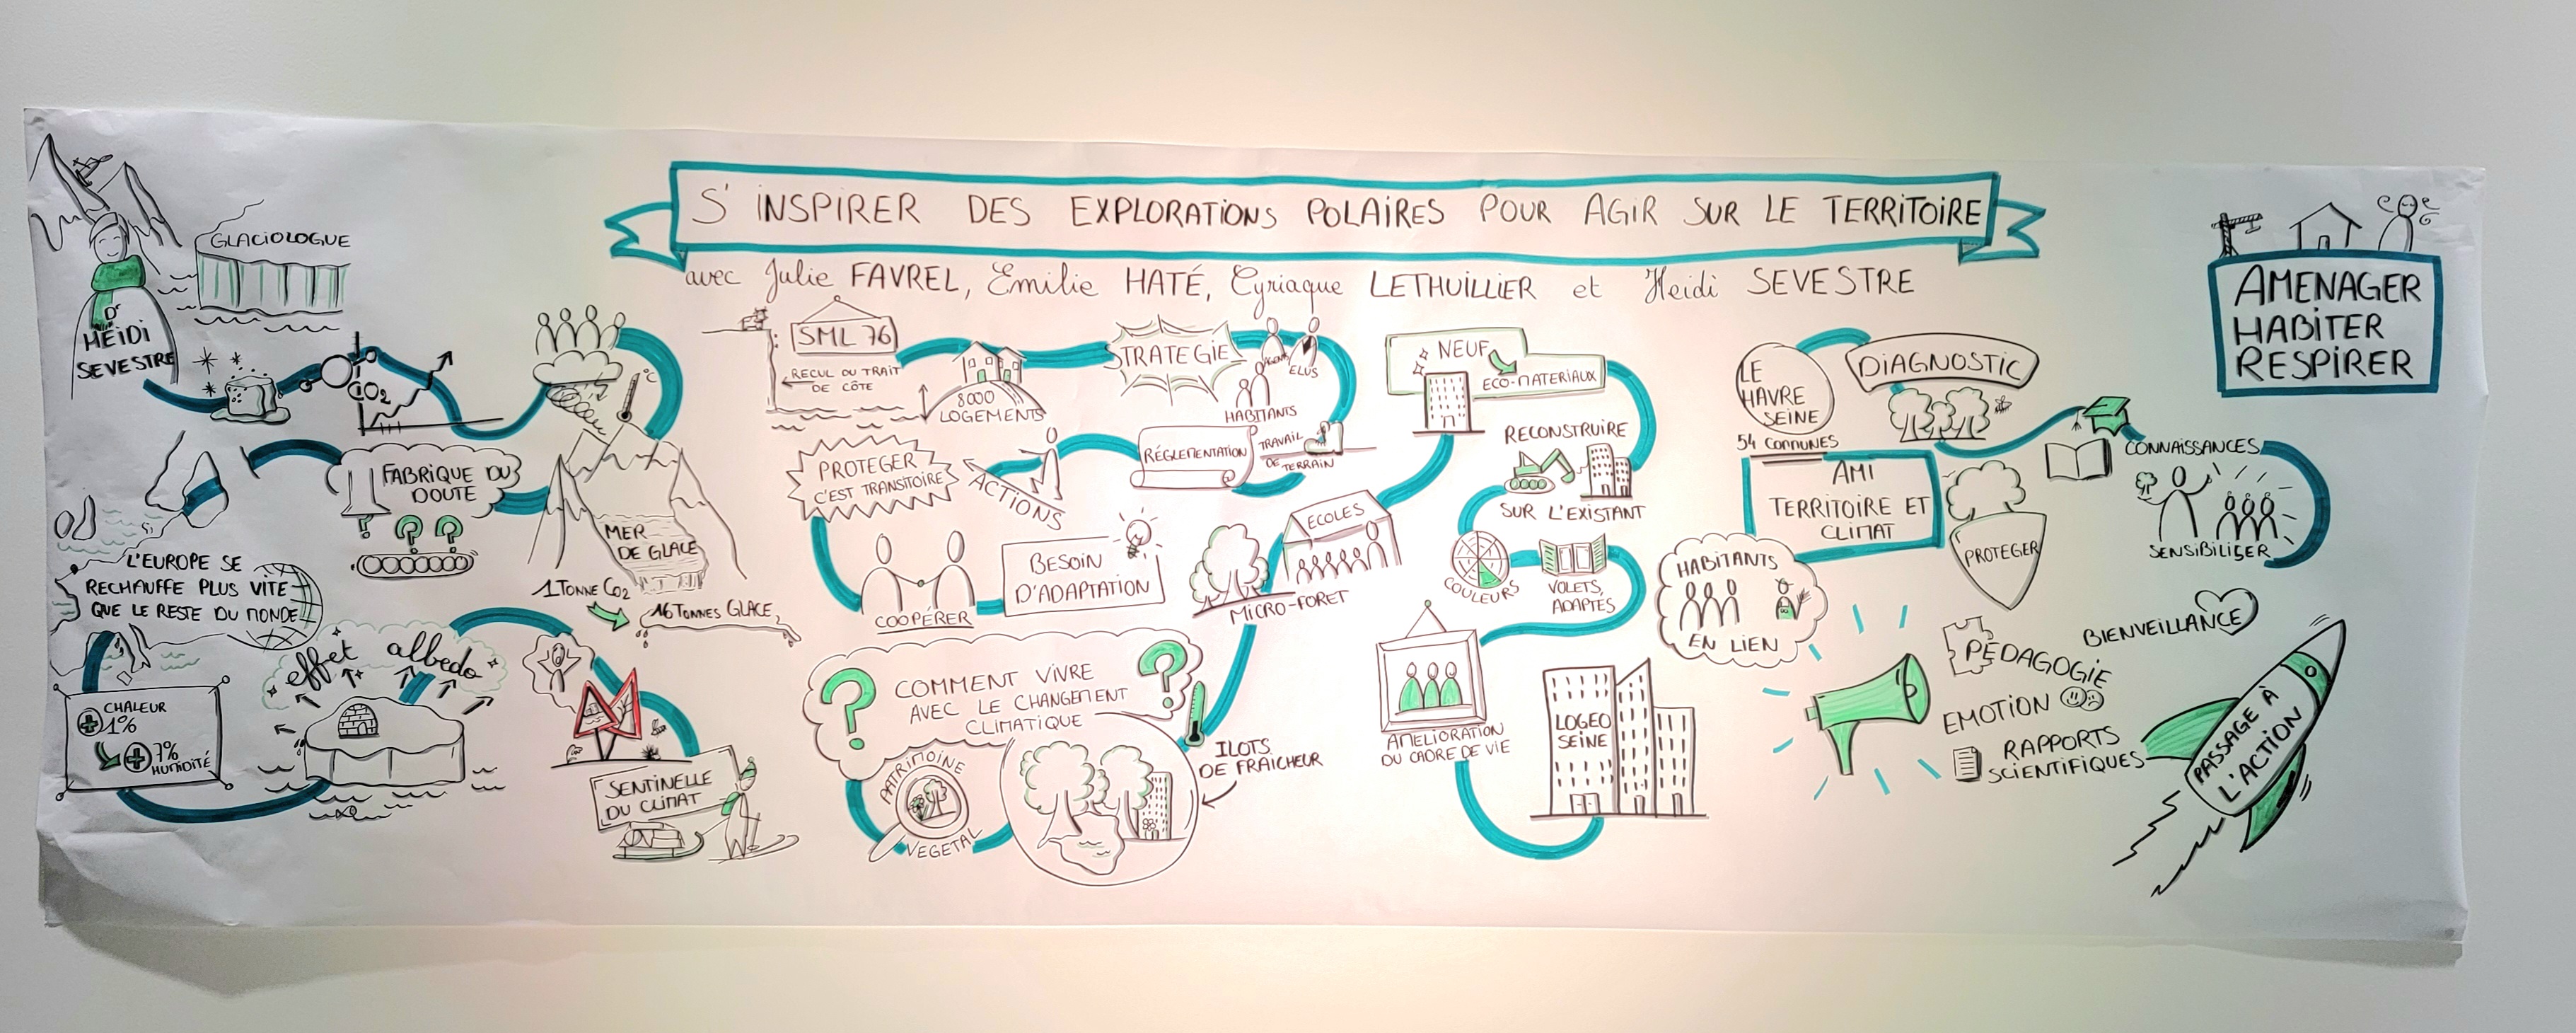 S' INSPIRER DES EXPLORATIONS POLAIRES POUR AGIR SUR LE TERRITOIRE
avec Julie FAVREL, Emilie HATÉ, Cyriaque LETHUILLIER et Heidi SEVESTRE
AMENAGER
HABITER
RESPIRER
GLACIOLOGUE
Dr
HEIDI
SEVESTRE
CO2
°C
FABRIQUE DU
DOUTE
? ? ?
MER
DE GLACE
1 TONNE CO2
16 TONNES GLACE
L'EUROPE SE
RECHAUFFE PLUS VITE
QUE LE RESTE DU MONDE
CHALEUR
+ 1%
+ 7%
HUMIDITÉ
effet albedo
SENTINELLE
DU CLIMAT
SML 76
RECUL DU TRAIT
DE CÔTE
8000
LOGEMENTS
STRATEGIE
AGENTS
ELUS
HABITANTS
TRAVAIL
DE TERRAIN
RÉGLEMENTATION
ACTIONS
PROTEGER
C'EST TRANSITOIRE
COOPÉRER
BESOIN
D'ADAPTATION
? COMMENT VIVRE ?
AVEC LE CHANGEMENT
CLIMATIQUE
PATRIMOINE
VEGETAL
ILOTS
DE FRAICHEUR
MICRO-FORET
ECOLES
NEUF
ECO-MATERIAUX
RECONSTRUIRE
SUR L'EXISTANT
COULEURS
VOLETS,
ADAPTES
AMELIORATION
DU CADRE DE VIE
LOGEO
SEINE
LE
HAVRE
SEINE
54 COMMUNES
DIAGNOSTIC
CONNAISSANCES
SENSIBILISER
PROTEGER
AMI
TERRITOIRE ET
CLIMAT
HABITANTS
EN LIEN
BIENVEILLANCE
PÉDAGOGIE
EMOTION
RAPPORTS
SCIENTIFIQUES
PASSAGE À
L'ACTION